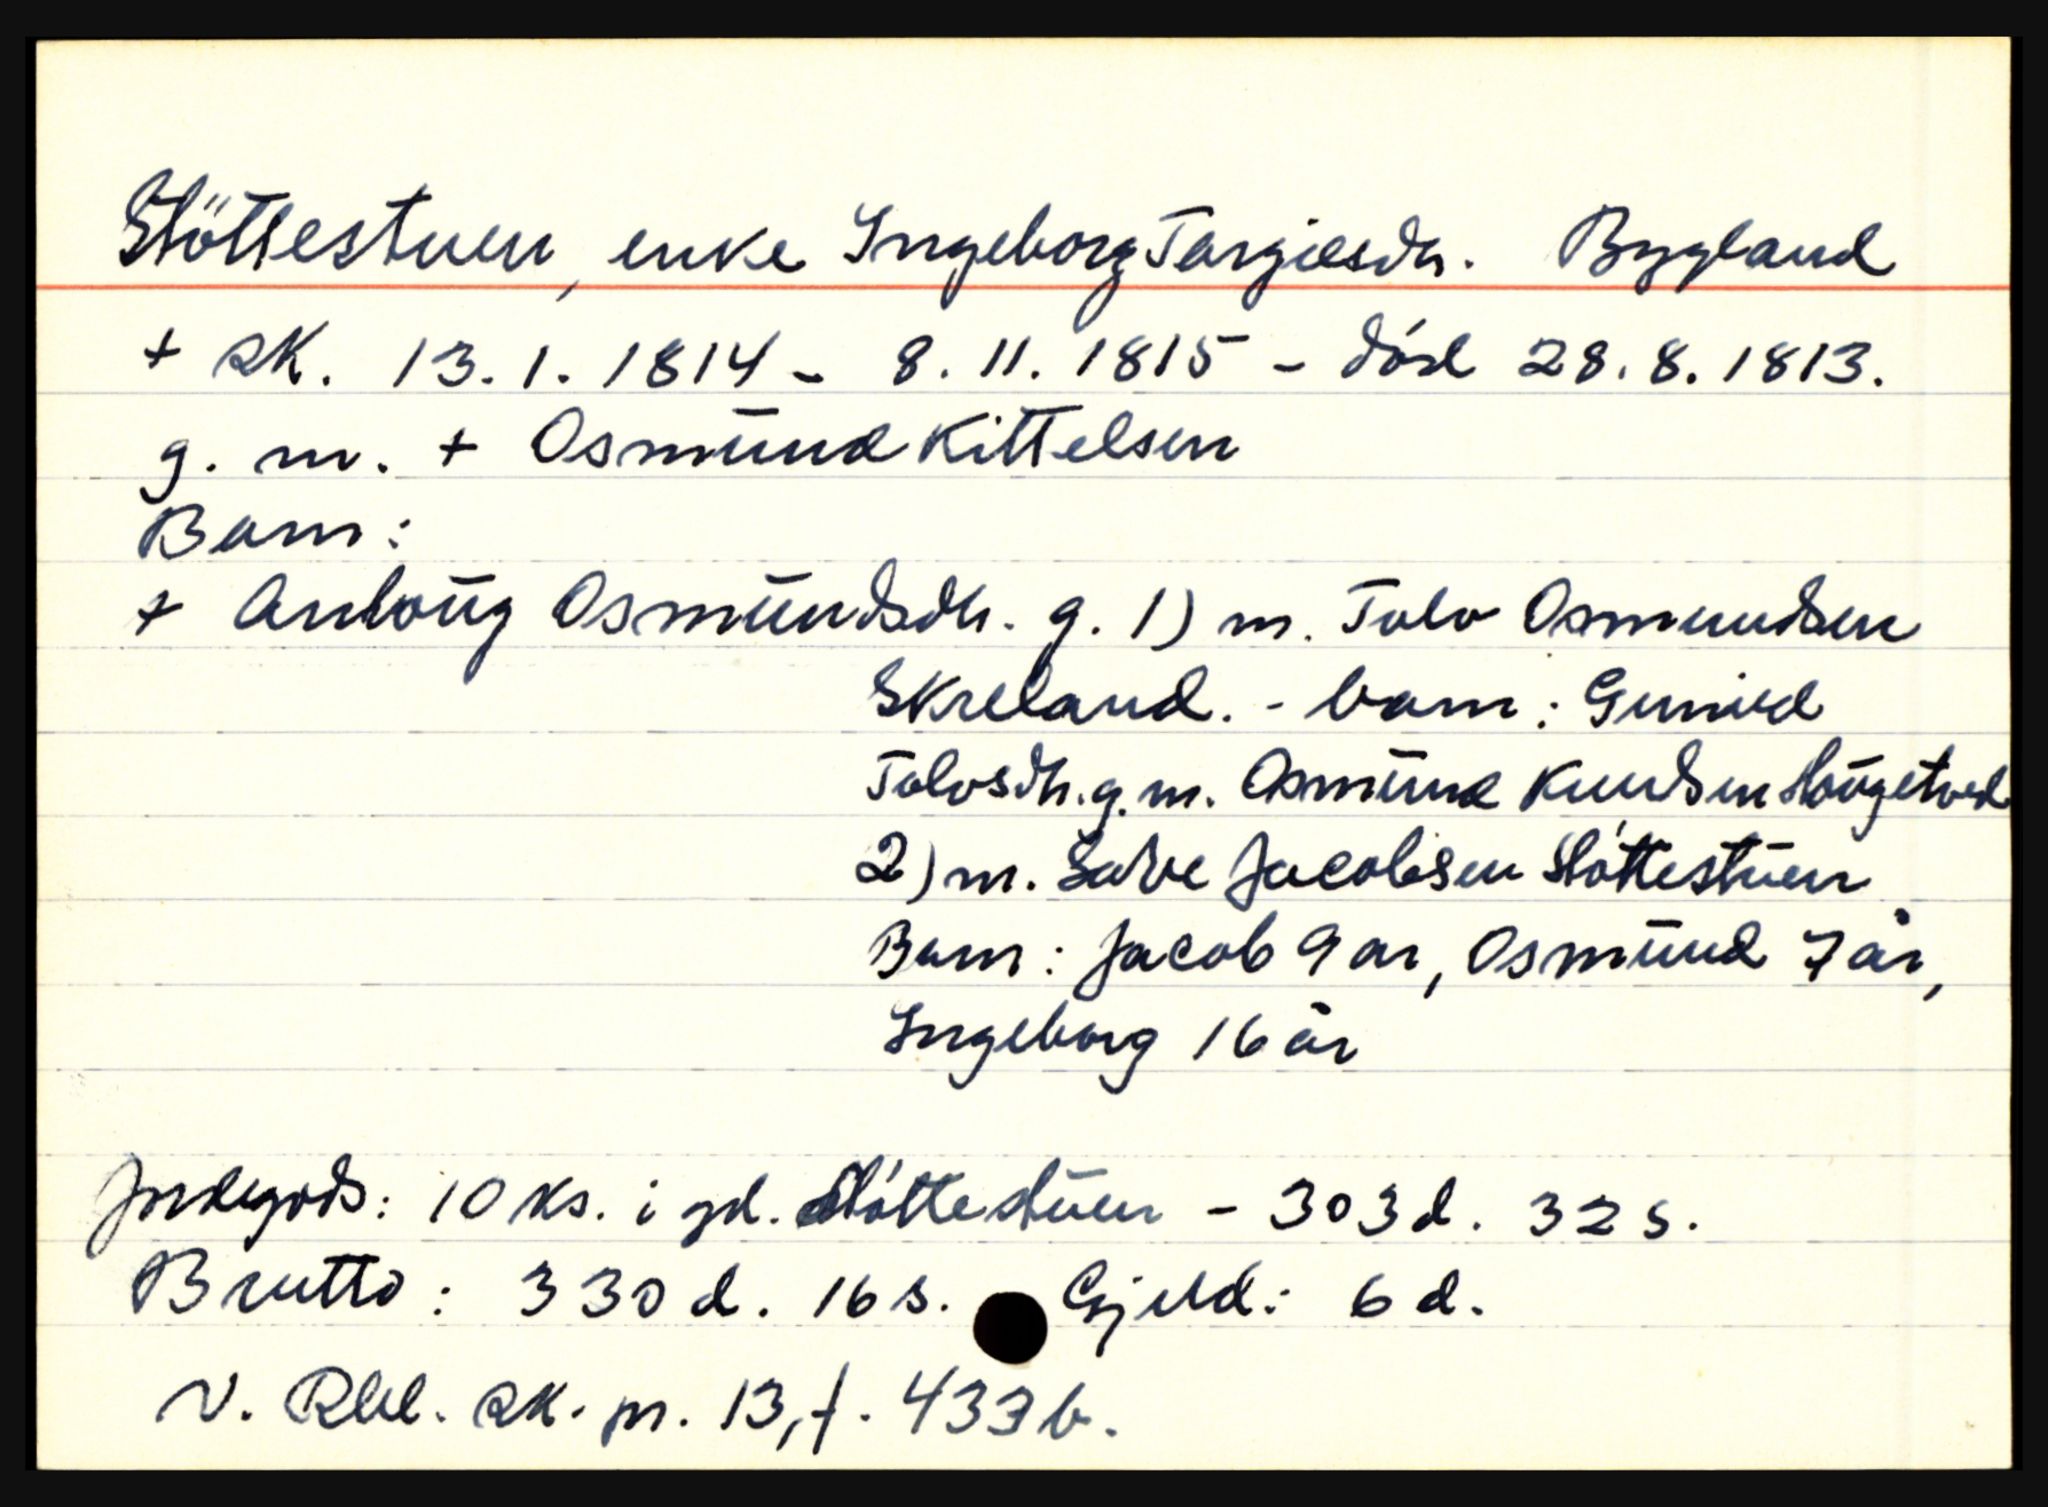 Støttestuen, enke Ingeborg Targiesdtr. Bygland
+ sk. 13.1.1814 - 8.11.1815 - død 28.8.1813.
g. m. + Osmund Kittelsen
Barn:
+ Anloug Osmundsdtr. g. 1) m. Tolv Osmundsen
Skreland. - barn: Gunvild
Tolvsdtr. g. m. Osmund Knudsen Hougetved
2) m. Salve Jacobsen Støttestuen
Barn: Jacob 9 år, Osmund 7 år,
Ingeborg 16 år
Jordegods: 10 ks. i gd. Støttestuen - 303 d. 32 s.
Brutto: 330 d. 16 s. Gjeld: 6 d.
N. Rbl. sk. pr. 13, f. 433 b.